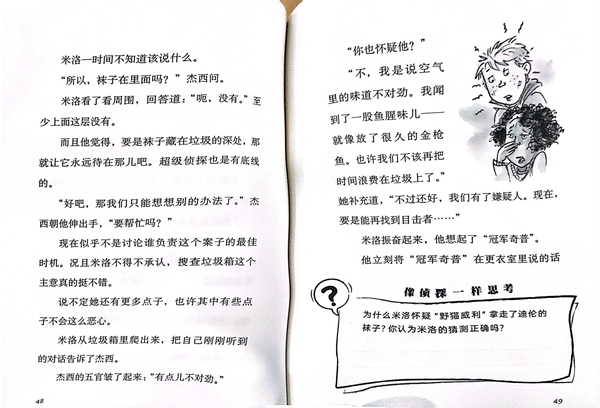 米洛一时间不知道该说什么。
“所以，袜子在里面吗？”杰西问。
米洛看了看周围，回答道：“呃，没有。”至
少上面这层没有。
而且他觉得，要是袜子藏在垃圾的深处，那
就让它永远待在那儿吧。超级侦探也是有底线
的。
“好吧，那我们只能想想别的办法了。”杰
西朝他伸出手，“要帮忙吗？”
现在似乎不是讨论谁负责这个案子的最佳
时机。况且米洛不得不承认，搜查垃圾箱这个
主意真的挺不错。
说不定她还有更多点子，也许其中有些点
子不会这么恶心。
米洛从垃圾箱里爬出来，把自己刚刚听到
的对话告诉了杰西。
杰西的五官皱了起来：“有点儿不对劲。”
48
“你也怀疑他？”
“不，我是说空气
里的味道不对劲。我闻
到了一股鱼腥味儿——
就像放了很久的金枪
鱼。也许我们不该再把
时间浪费在垃圾上了。”
她补充道，“不过还好，我们有了嫌疑人。现在，
要是能再找到目击者……”
米洛振奋起来，他想起了“冠军奇普”。
他立刻将“冠军奇普”在更衣室里说的话
像侦探一样思考
?
为什么米洛怀疑“野猫威利”拿走了迪伦的
袜子？你认为米洛的猜测正确吗？
49